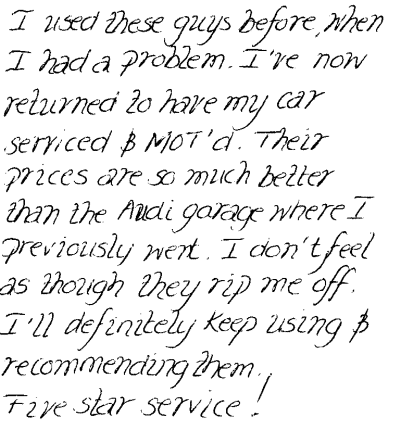 I used these guys before, when
I had a problem. I've now
returned to have my car
serviced & MOT'd. Their
prices are so much better
than the Audi garage where I
previously went. I don't feel
as though they rip me off.
I'll definitely keep using &
recommending them.
Five star service!